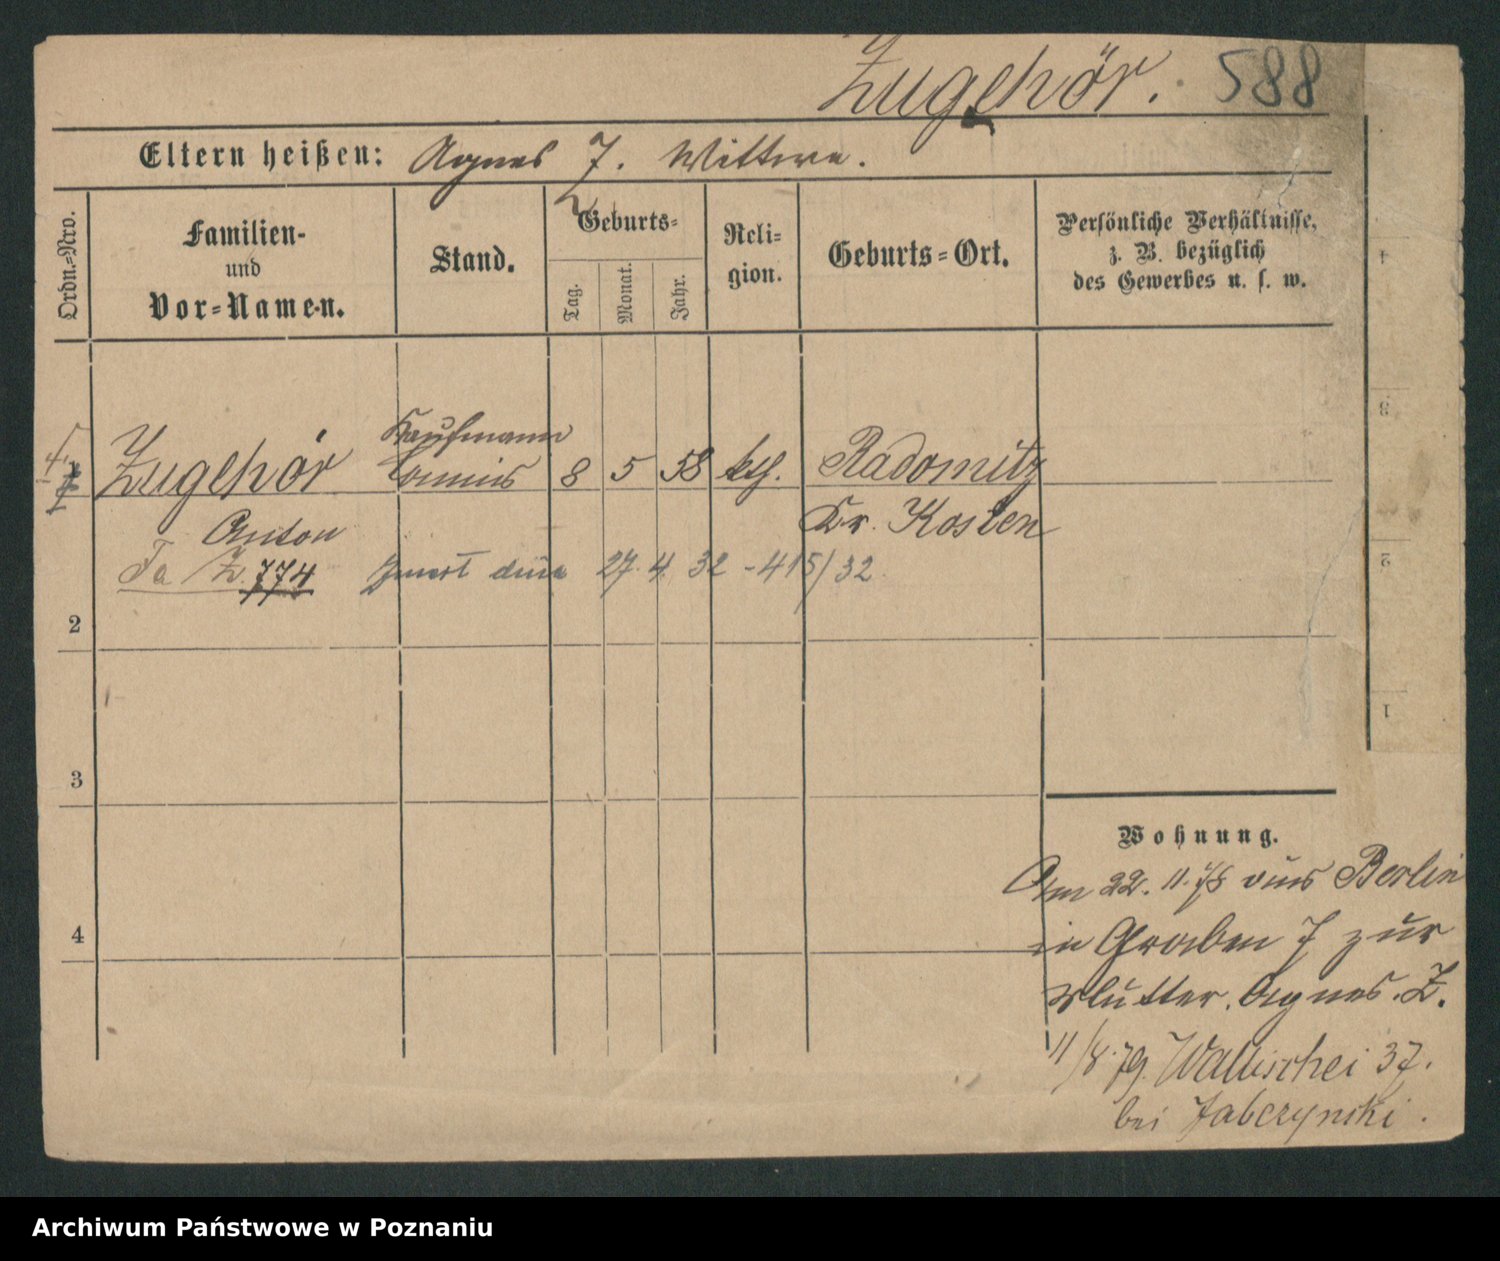 Zugehör. 588
Eltern heißen: Agnes Z. Wittwe.
Ordn.=Nro.
Familien-
und
Vor=Namen.
Stand.
Geburts=
Tag.
Monat.
Jahr.
Reli=
gion.
Geburts=Ort.
Persönliche Verhältnisse,
z. B. bezüglich
des Gewerbes u. s. w.
Kaufmann
Zugehör Commis 8 5 58 kth. Radomitz
Anton Kr. Kosten
Fa Z. 774 27. 4. 32 - 415/32
2
3
4
Wohnung.
Am 22. 11. 78 aus Berlin
in Graben 7 zur
Mutter. Agnes. Z.
11/8. 79. Wallischei 37.
bei Jabczynski.
4
3
2
1
Archiwum Państwowe w Poznaniu